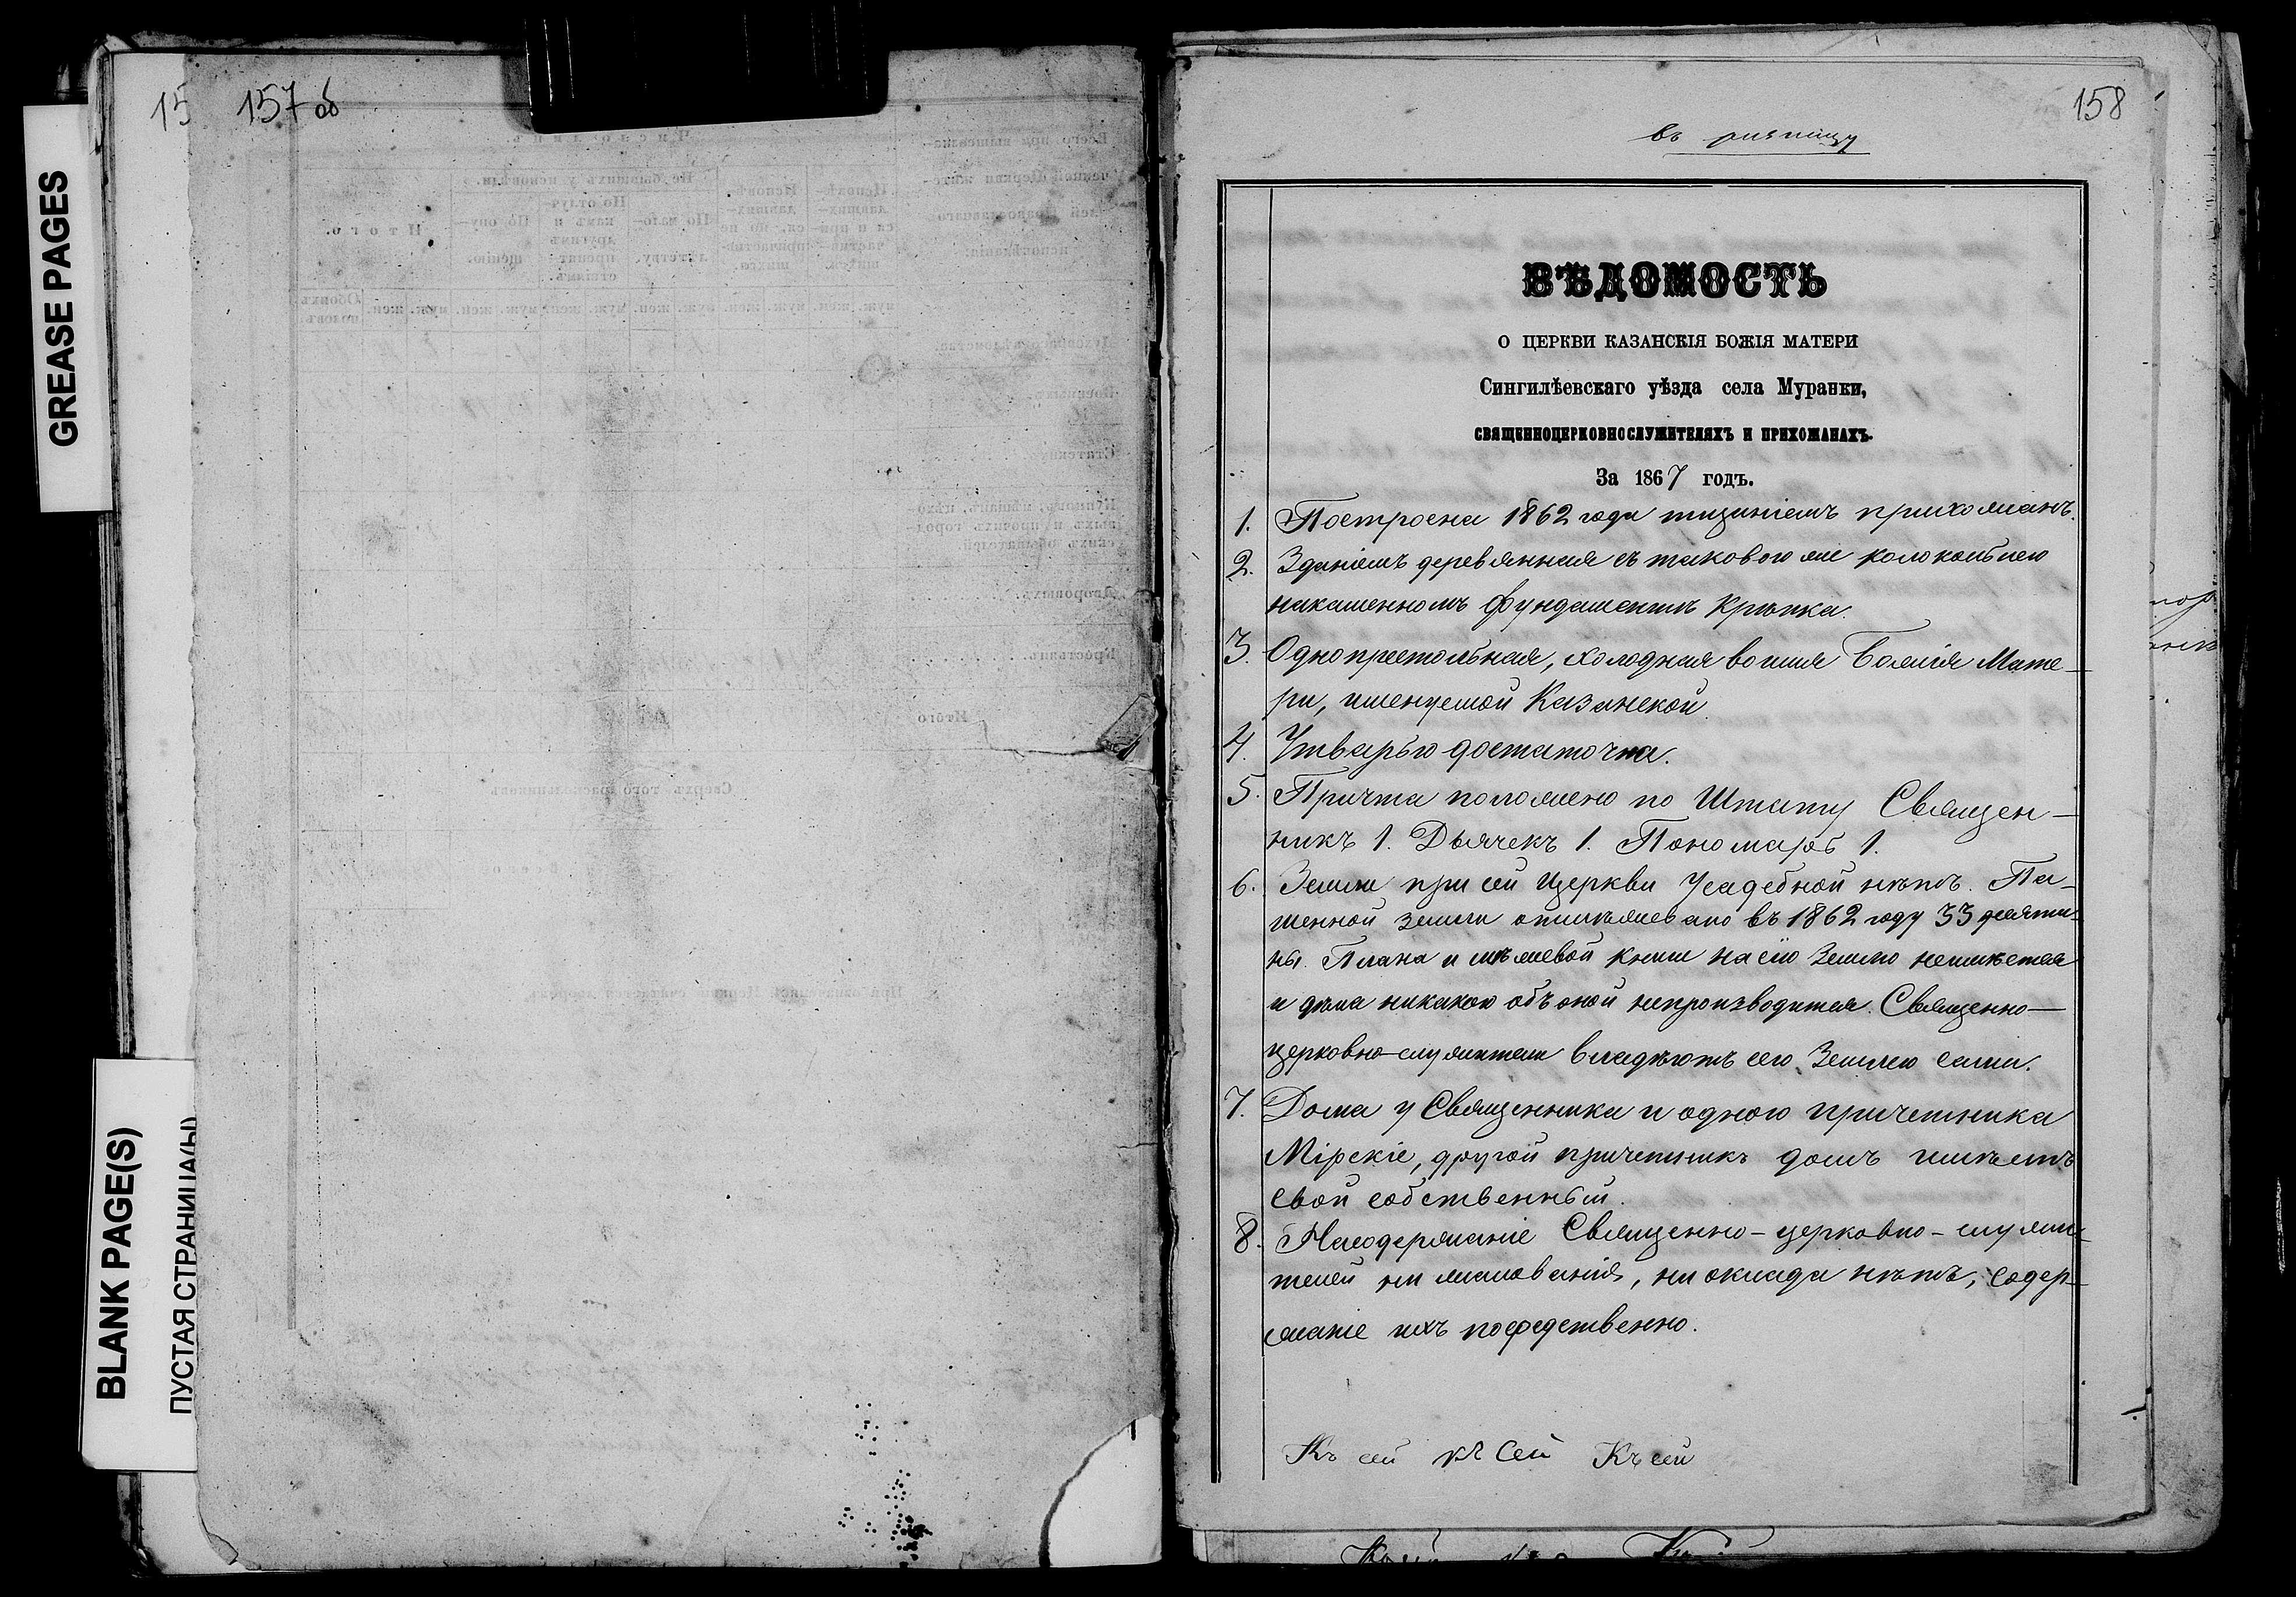 GREASE PAGES
BLANK PAGE(S)
ПУСТАЯ СТРАНИЦА(Ы)
15
157 об
158
въ ризницу
ВѢДОМОСТЬ
О ЦЕРКВИ КАЗАНСКІЯ БОЖІЯ МАТЕРИ
Сингилѣевскаго уѣзда села Муранки,
СВЯЩЕННОЦЕРКОВНОСЛУЖИТЕЛЯХЪ И ПРИХОЖАНАХЪ.
За 1867 годъ.
1. Построена 1862 года тщаніемъ прихожанъ.
2. Зданіемъ деревянная съ таковою же колокольнею
накаменномъ фундаментѣ крѣпка.
3. Однопрестольная, холодная воимя Божія Мате-
ри, именуемой Казанской.
4. Утварью достаточна.
5. Причта положено по Штату Священ-
никъ 1. Дьячекъ 1. Пономарь 1.
6. Земли при сей Церкви Усадебной нѣтъ. Па-
шенной земли отмѣжевано въ 1862 году 33 десяти-
ны. Плана и мѣжевой книги на сію Землю неимѣется
и дѣла никакого объ оной непроизводится. Священно-
церковно-служители владѣютъ сею Землею сами.
7. Дома у Священника и одного причетника
Мірскіе, другой причетникъ домъ имѣетъ
свой собственный.
8. Насодержаніе Священно-церковно-служи-
телей ни жалованія, ни оклада нѣтъ, содер-
жаніе ихъ посредственно.
Къ сей къ Сей Къ сей